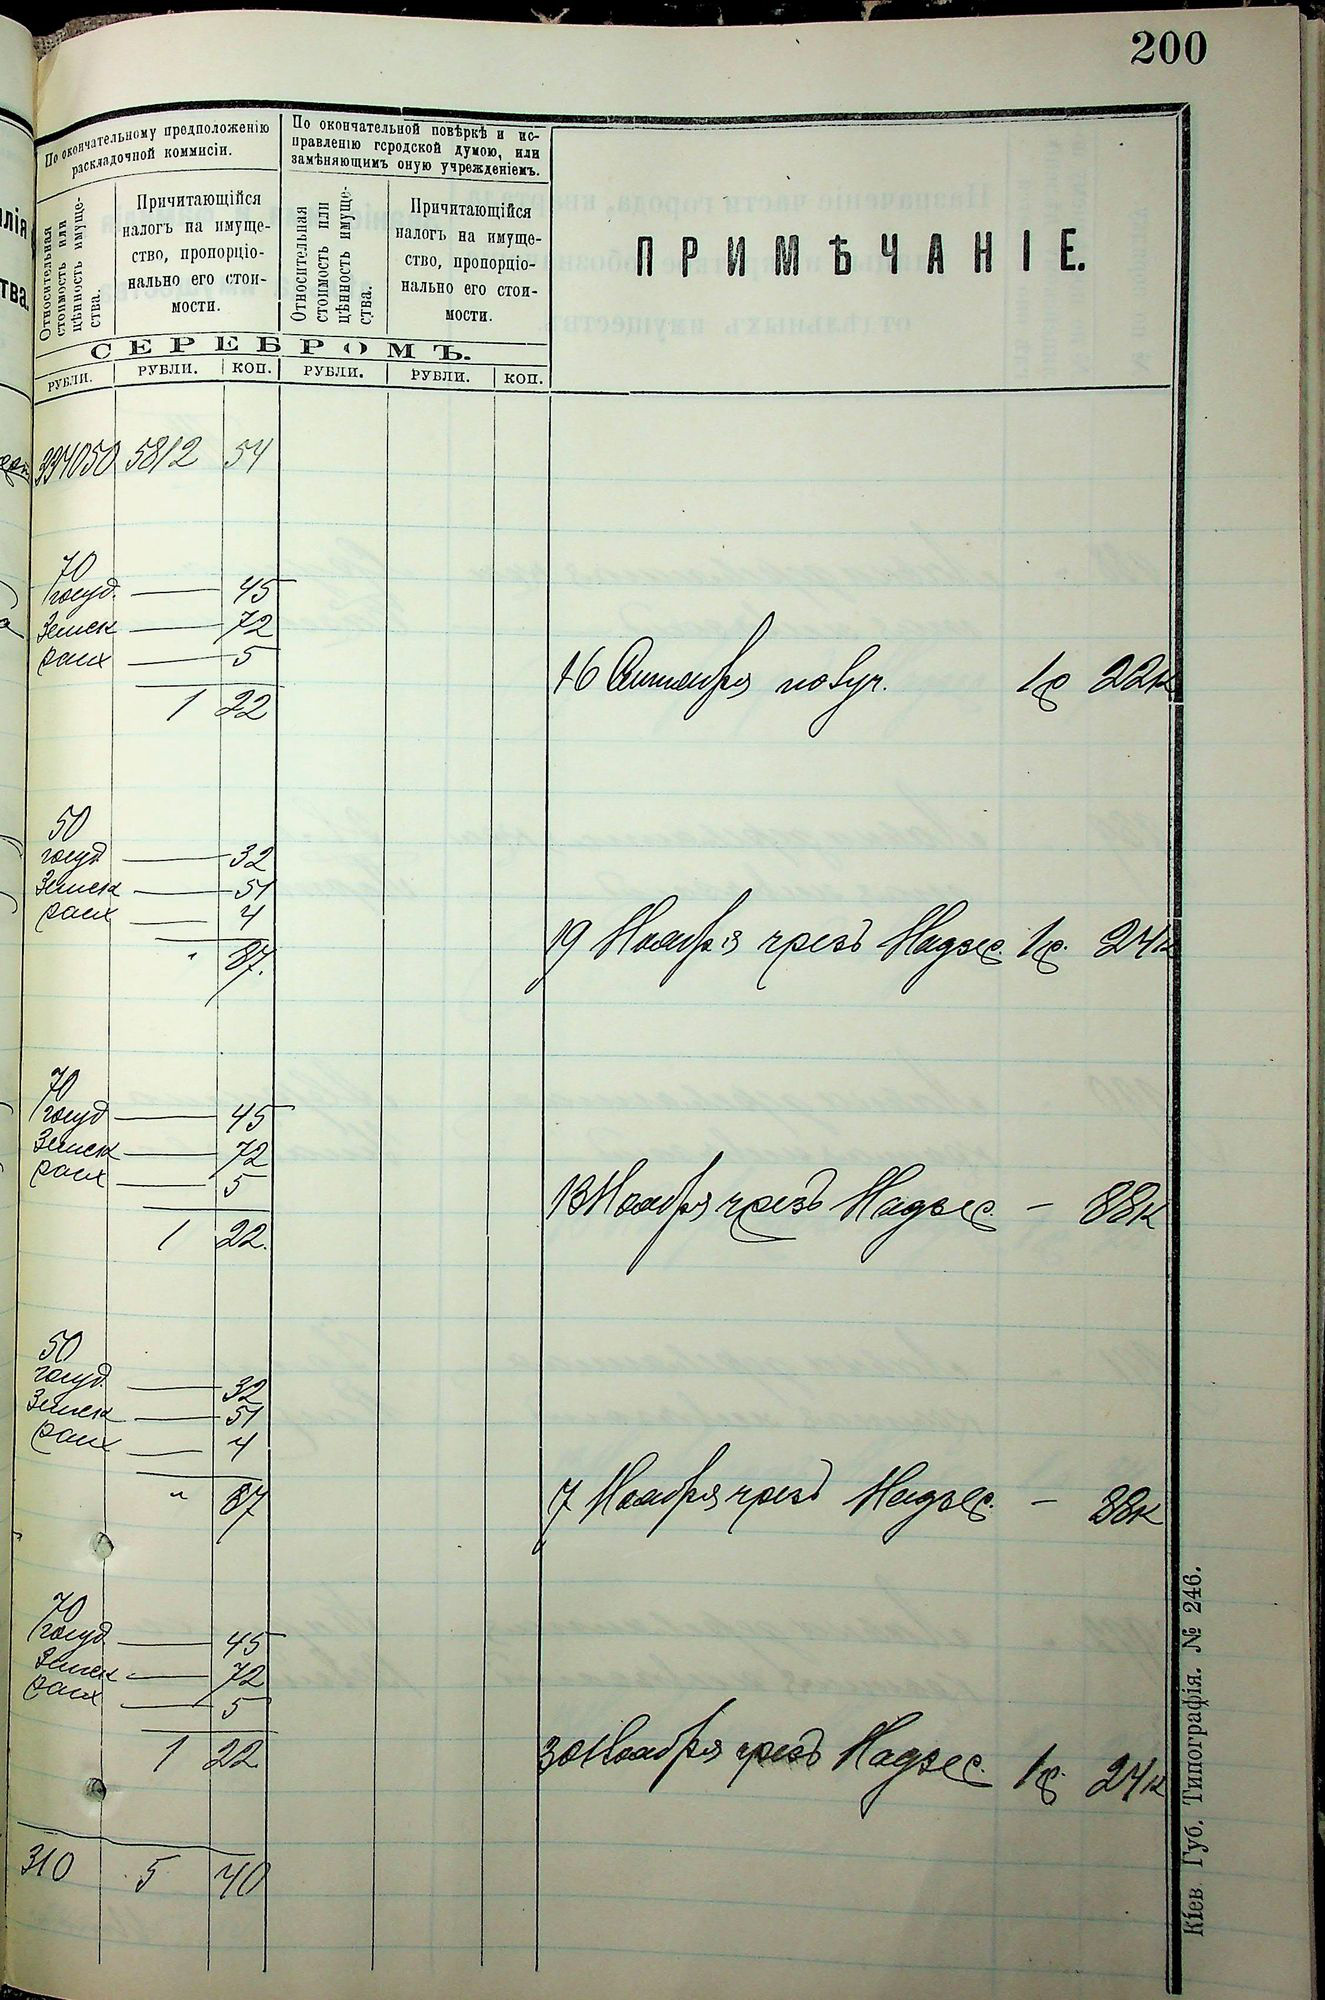 200
По окончательному предположенію
раскладочной коммисіи.
По окончательной повѣркѣ и ис-
правленію городской думою, или
замѣняющимъ оную учрежденіемъ.
ПРИМѢЧАНІЕ.
Относительная
стоимость или
цѣнность имуще-
ства.
Причитающійся
налогъ на имуще-
ство, пропорціо-
нально его стои-
мости.
Относительная
стоимость или
цѣнность имуще-
ства.
Причитающійся
налогъ на имуще-
ство, пропорціо-
нально его стои-
мости.
СЕРЕБРОМЪ.
РУБЛИ. РУБЛИ. КОП. РУБЛИ. РУБЛИ. КОП.
334050 5812 54
70
госуд. — 45
Земск — 72
расх — 5
1 22
16 Октября получ. 1р 22к
50
госуд — 32
Земск — 51
расх — 4
" 87.
19 Ноября чрезъ Надзс. 1р. 24к
70
госуд — 45
Земск — 72
расх — 5
1 22.
13 Ноября чрезъ Надзс. — 88к
50
госуд. — 32
Земск — 51
расх — 4
" 87
7 Ноября чрезъ Надзс. — 88к
70
госуд — 45
Земск — 72
расх — 5
1 22
30 Ноября чрезъ Надзс. 1р. 24к
310 5 40
Кіев. Губ. Типографія. № 246.